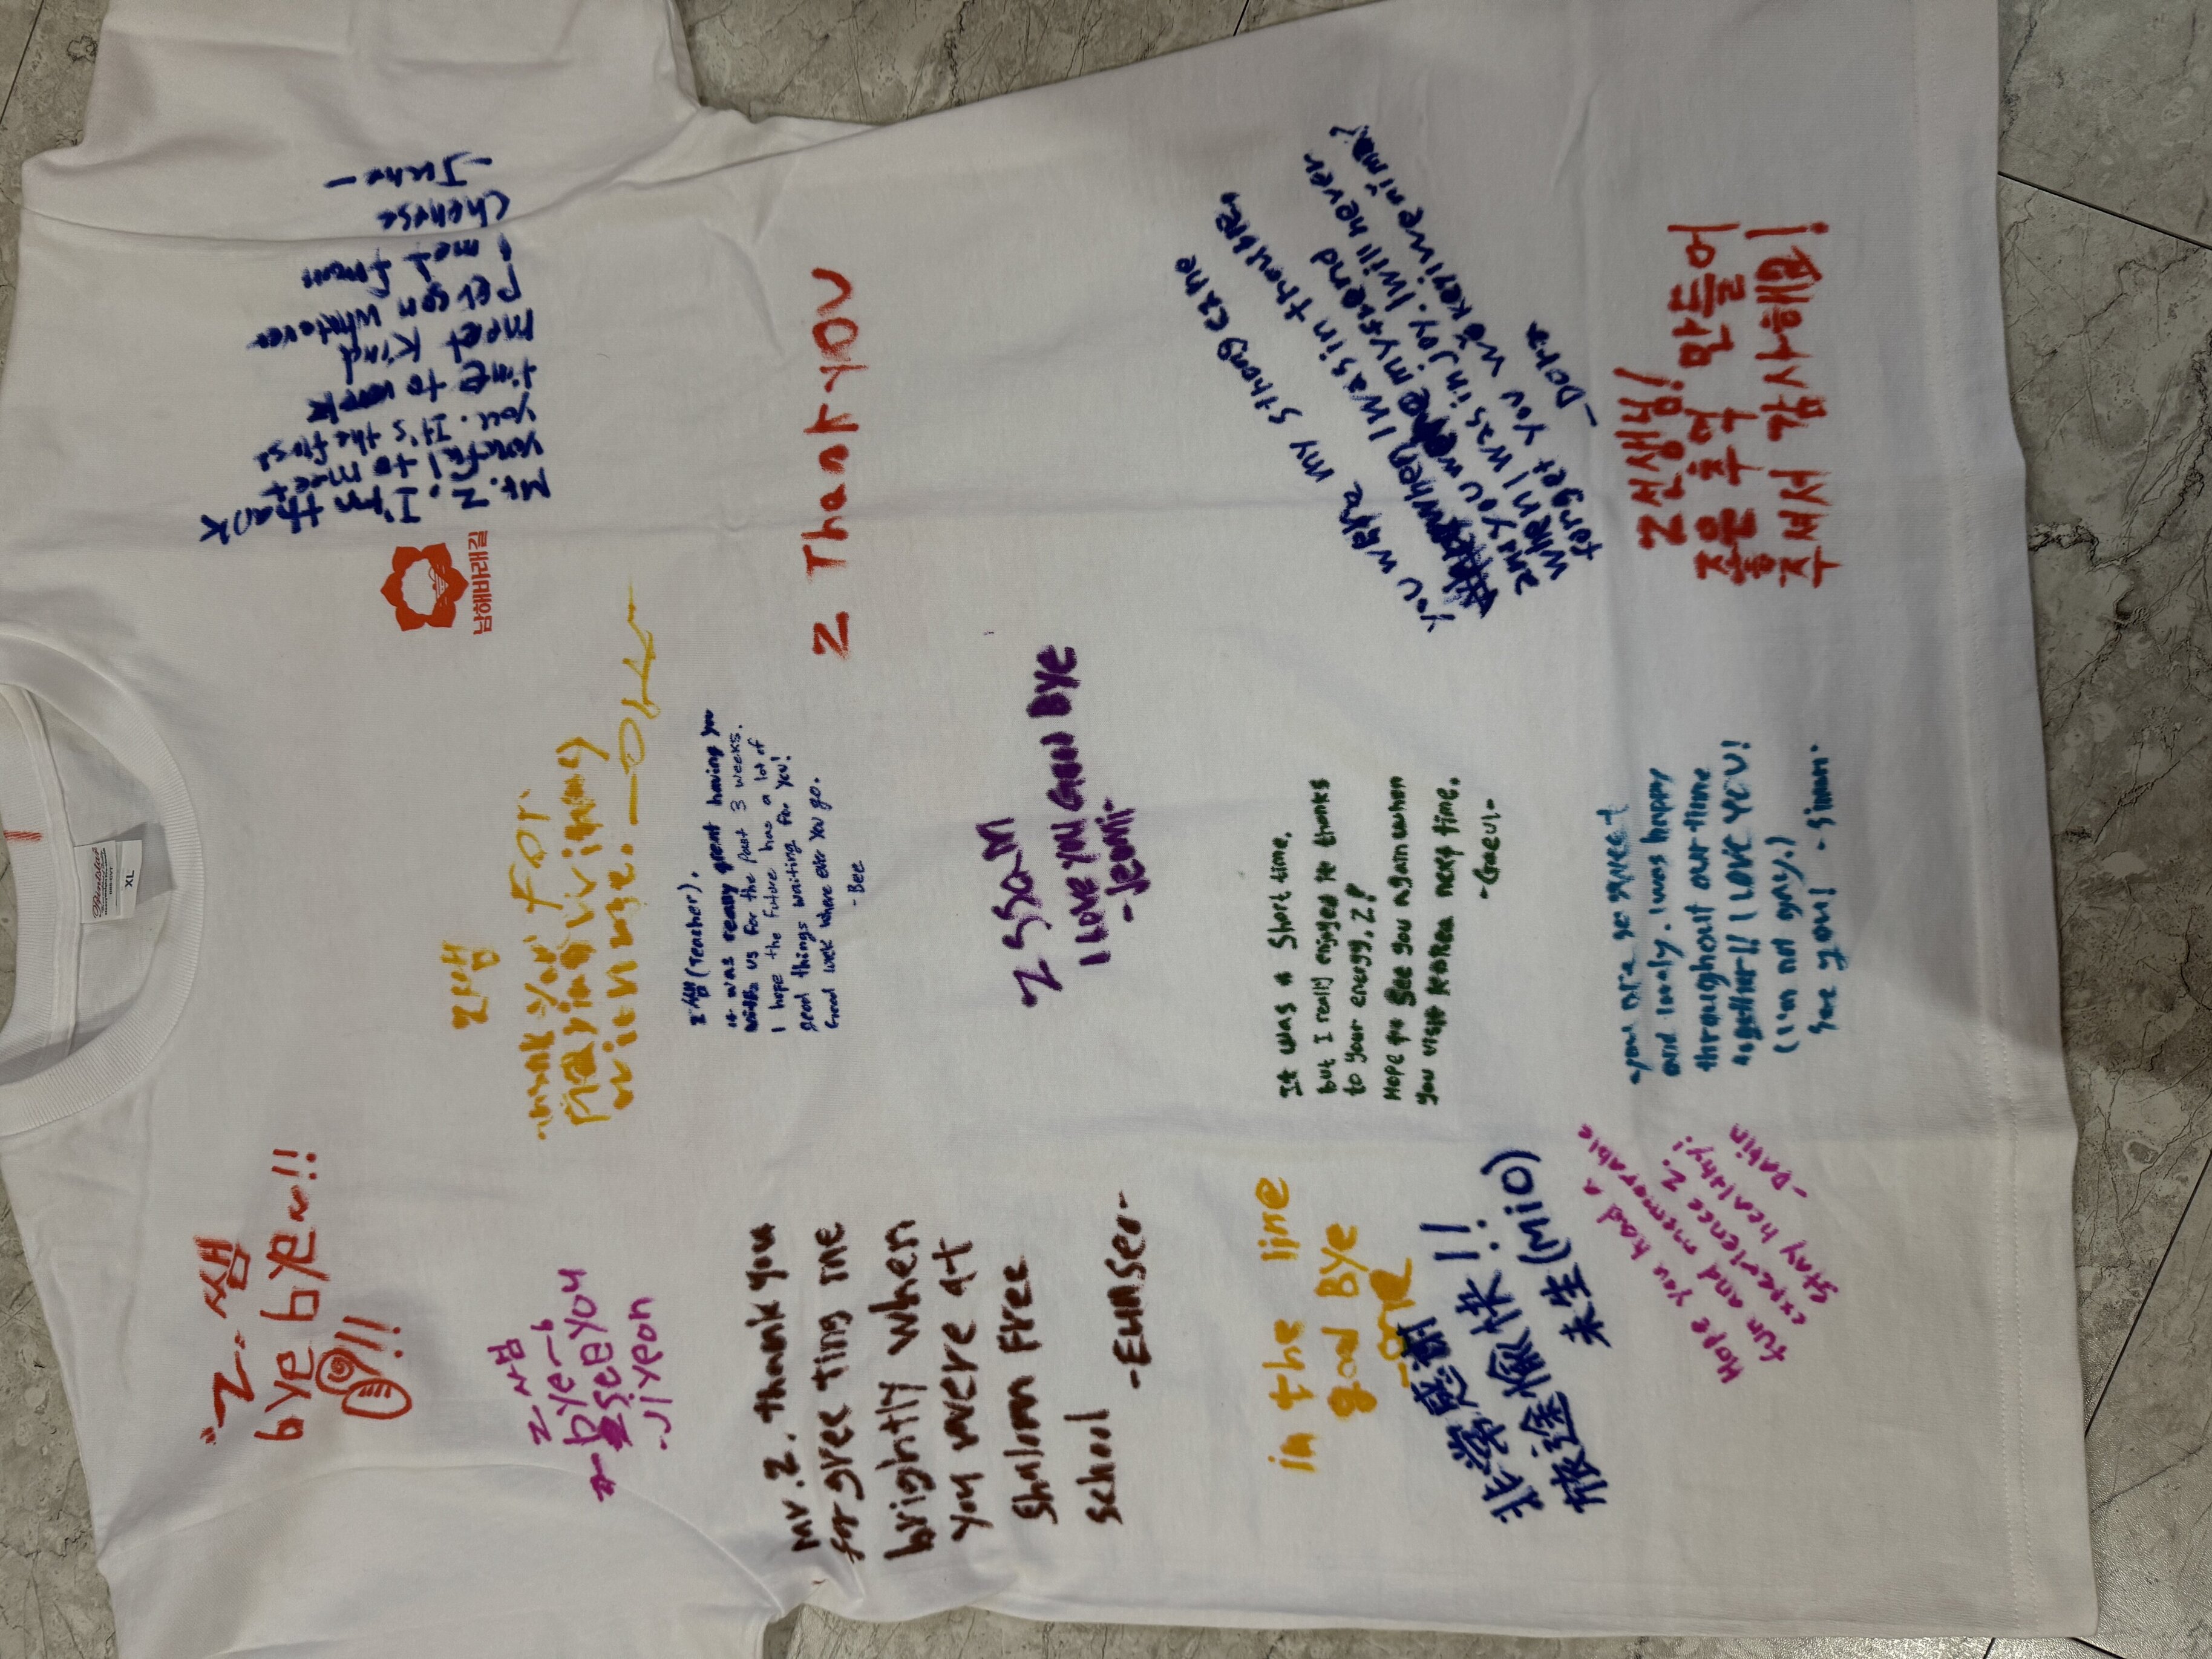 XL
"Z" 쌤
bye bye~!!
!!
Mr. Z. I'm thank
yourful to meet
you. It's the first
time to
meet kind
person whatever
I met from
Chenese
-Juha-
남해바래길
Z쌤
Thank you For
Playing wi
writh me.
Z 쌤
bye-b
see you
-Jiyeon
Z 쌤(Teacher).
it was really great having you
with us for the past 3 weeks.
I hope the future has a lot of
good things waiting for you!
Good luck where ever you go.
-Bee
Z Thank you
Mr.Z. thank you
for greeting me
brightly when
you were at
Shalom Free
school
-Eunseo-
Z SSaM
I Love you Good BYe
-Jeomi-
You were my strong cane
when I was in thouble,
and you were my friend
when I was in joy. I will never
forget you
-Dora
It was a short time,
but I really enjoyed it thanks
to your energy, Z!
Hope to see you again when
you visit KOREA next time.
-Gaeul-
in the line
good BYe
非常感谢!!
旅途愉快!
未生(MIO)
Z 선생님!
좋은 추억 만들어
주셔서 감사해요!
you are so sweet
and lovely. I was happy
throughout our time
together!! I LOVE YOU!
(I'm not gay.)
See you! -Siwan-
Hope you had a
fun and memorable
experience Z.
Stay healthy!
-Dabin